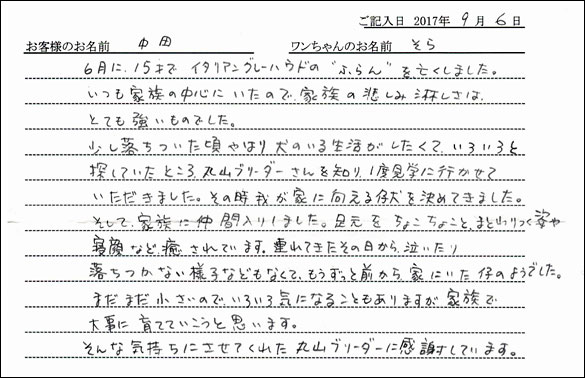 ご記入日 2017年 9月 6日
お客様のお名前 中田 ワンちゃんのお名前 そら
6月に、15才で イタリアングレーハウドの "ふらん" を亡くしました。
いつも家族の中心に いたので、家族の 悲しみ 淋しさは、
とても 強いものでした。
少し落ちついた頃 やはり 犬のいる生活が したくて、いろいろと
探していた ところ 丸山ブリーダーさんを知り、1度見学に行かせて
いただきました。その時 我が家に 向える仔犬を決めてきました。
そして、家族に仲間入りしました。足元を ちょこちょこと、まとわりつく姿や
寝顔など、癒されています。連れてきたその日から、泣いたり
落ちつかない様子などもなくて、もうずっと前から、家にいた仔のようでした。
まだまだ小さいので、いろいろ気になることもありますが家族で
大事に育てていこうと思います。
そんな気持ちにさせてくれた 丸山ブリーダーに感謝しています。